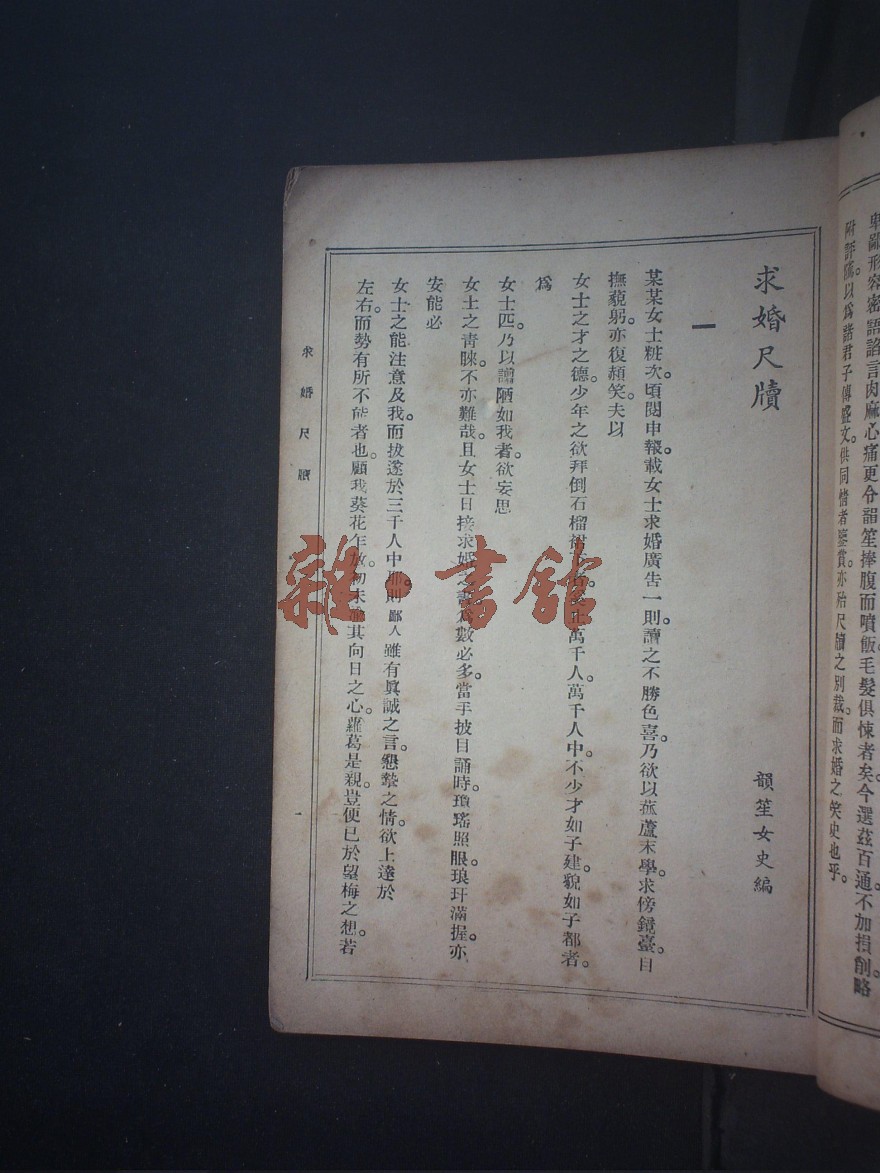 卑鄙形容密語諂言肉麻心痛更令韻笙捧腹而噴飯毛髮俱悚者矣。今選茲百通。不加損削略
附評騭。以爲諸君子傳盛文。供同情者鑒賞。亦殆尺牘之別裁。而求婚之笑史也乎。
求婚尺牘
韻笙女史編
一
某某女士粧次。頃閱申報。載女士求婚廣告一則。讀之不勝色喜。乃欲以菰蘆末學。求傍鏡臺。自
撫藐躬。亦復頳笑。夫以
女士之才之德。少年之欲拜倒石榴裙 萬千人。萬千人中。不少才如子建。貌如子都者。
爲
女士匹。乃以譾陋如我者。欲妄思
女士之靑睞。不亦難哉。且女士日接求婚之書。爲數必多。當手披目誦時。瓊瑤照眼。琅玕滿握。亦
安能必
女士之能注意及我。而拔邃於三千人中耶。則鄙人雖有眞誠之言。懇摯之情。欲上達於
左右。而勢有所不能者也。顧我葵花乍放。初未 其向日之心。蘿葛是親。豈便已於望梅之想。若
求婚尺牘
一
雜·書舘